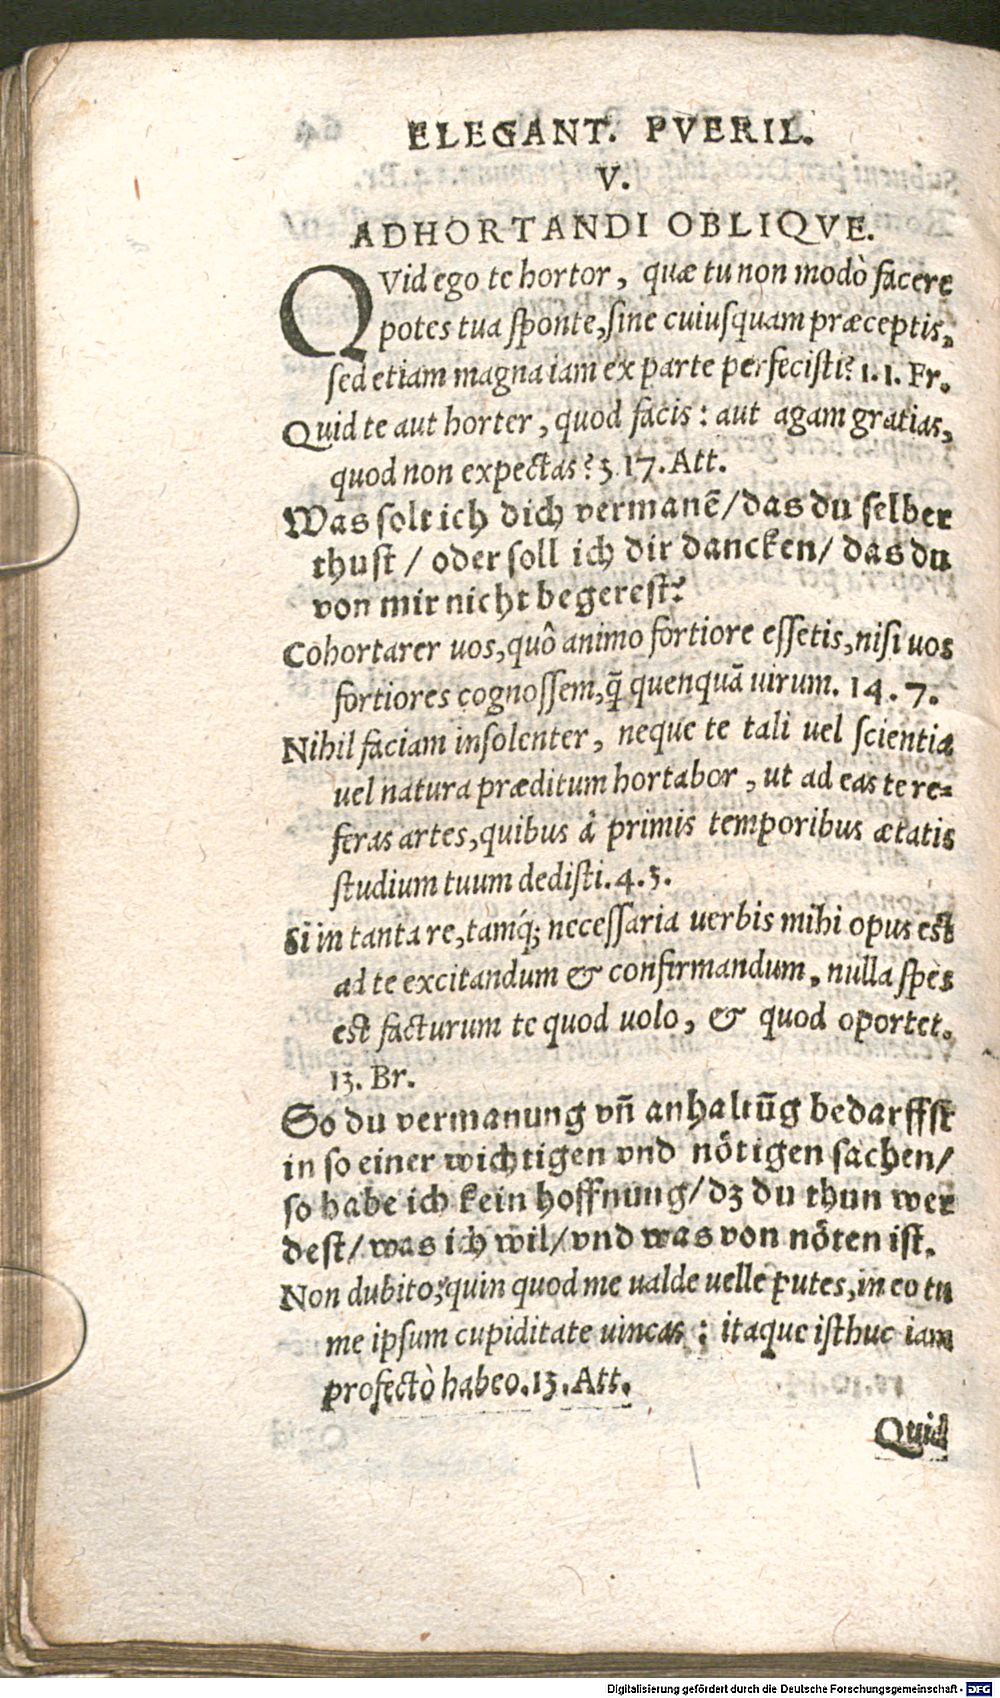 ELEGANT. PVERIL.
V.
ADHORTANDI OBLIQVE.
QVid ego te hortor, quæ tu non modò facere
potes tua sponte, sine cuiusquam præceptis,
sed etiam magna iam ex parte perfecisti? 1. 1. Fr.
Quid te aut horter, quod facis: aut agam gratias,
quod non expectas? 3 17. Att.
Was solt ich dich vermanē/das du selber
thust / oder soll ich dir dancken/ das du
von mir nicht begerest?
Cohortarer uos, quô animo fortiore essetis, nisi uos
fortiores cognossem, q̃ quenquā uirum. 14. 7.
Nihil faciam insolenter, neque te tali uel scientia
uel natura præditum hortabor, ut ad eas te re=
feras artes, quibus à primis temporibus ætatis
studium tuum dedisti. 4. 3.
Si in tanta re, tamq́; necessaria uerbis mihi opus est
ad te excitandum & confirmandum, nulla spes
est facturum te quod uolo, & quod oportet.
13. Br.
So du vermanung vñ anhaltūg bedarffst
in so einer wichtigen vnd nötigen sachen/
so habe ich kein hoffnung/dz du thun wer
dest/ was ich wil/vnd was von nöten ist.
Non dubito, quin quod me ualde uelle putes, in eo tu
me ipsum cupiditate uincas: itaque isthuc iam
profectò habeo. 13. Att.
Quid
Digitalisierung gefördert durch die Deutsche Forschungsgemeinschaft - DFG